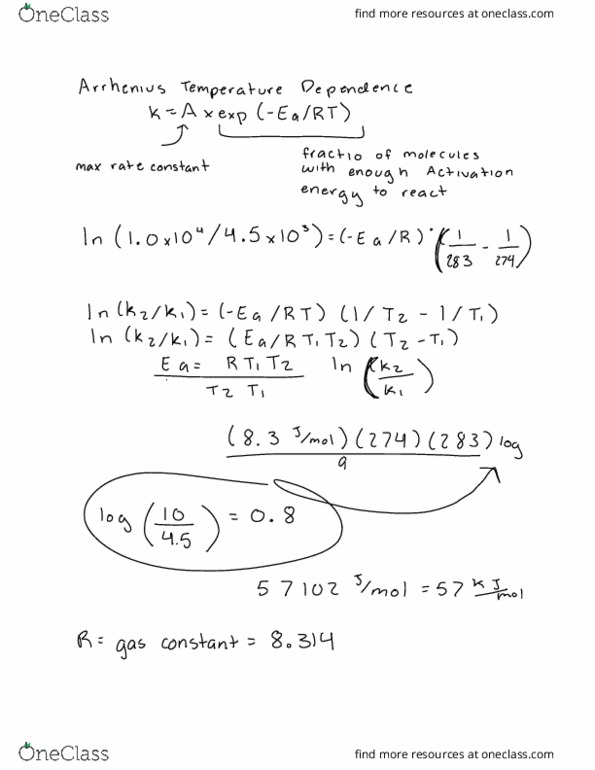 OneClass find more resources at oneclass.com
Arrhenius Temperature Dependence
k=A x exp (-Ea/RT)
max rate constant
fractio of molecules
with enough Activation
energy to react
ln (1.0x10⁴/4.5x10³)=(-Ea/R)·(1/283 - 1/274)
ln(k₂/k₁)=(-Ea/RT) (1/T₂ - 1/T₁)
ln(k₂/k₁)= (Ea/RT₁T₂) (T₂-T₁)
Ea= RT₁T₂ ln (k₂/k₁)
T₂ T₁
(8.3 J/mol)(274)(283) log
9
log (10/4.5) = 0.8
57102 J/mol = 57 kJ/mol
R= gas constant = 8.314
OneClass find more resources at oneclass.com